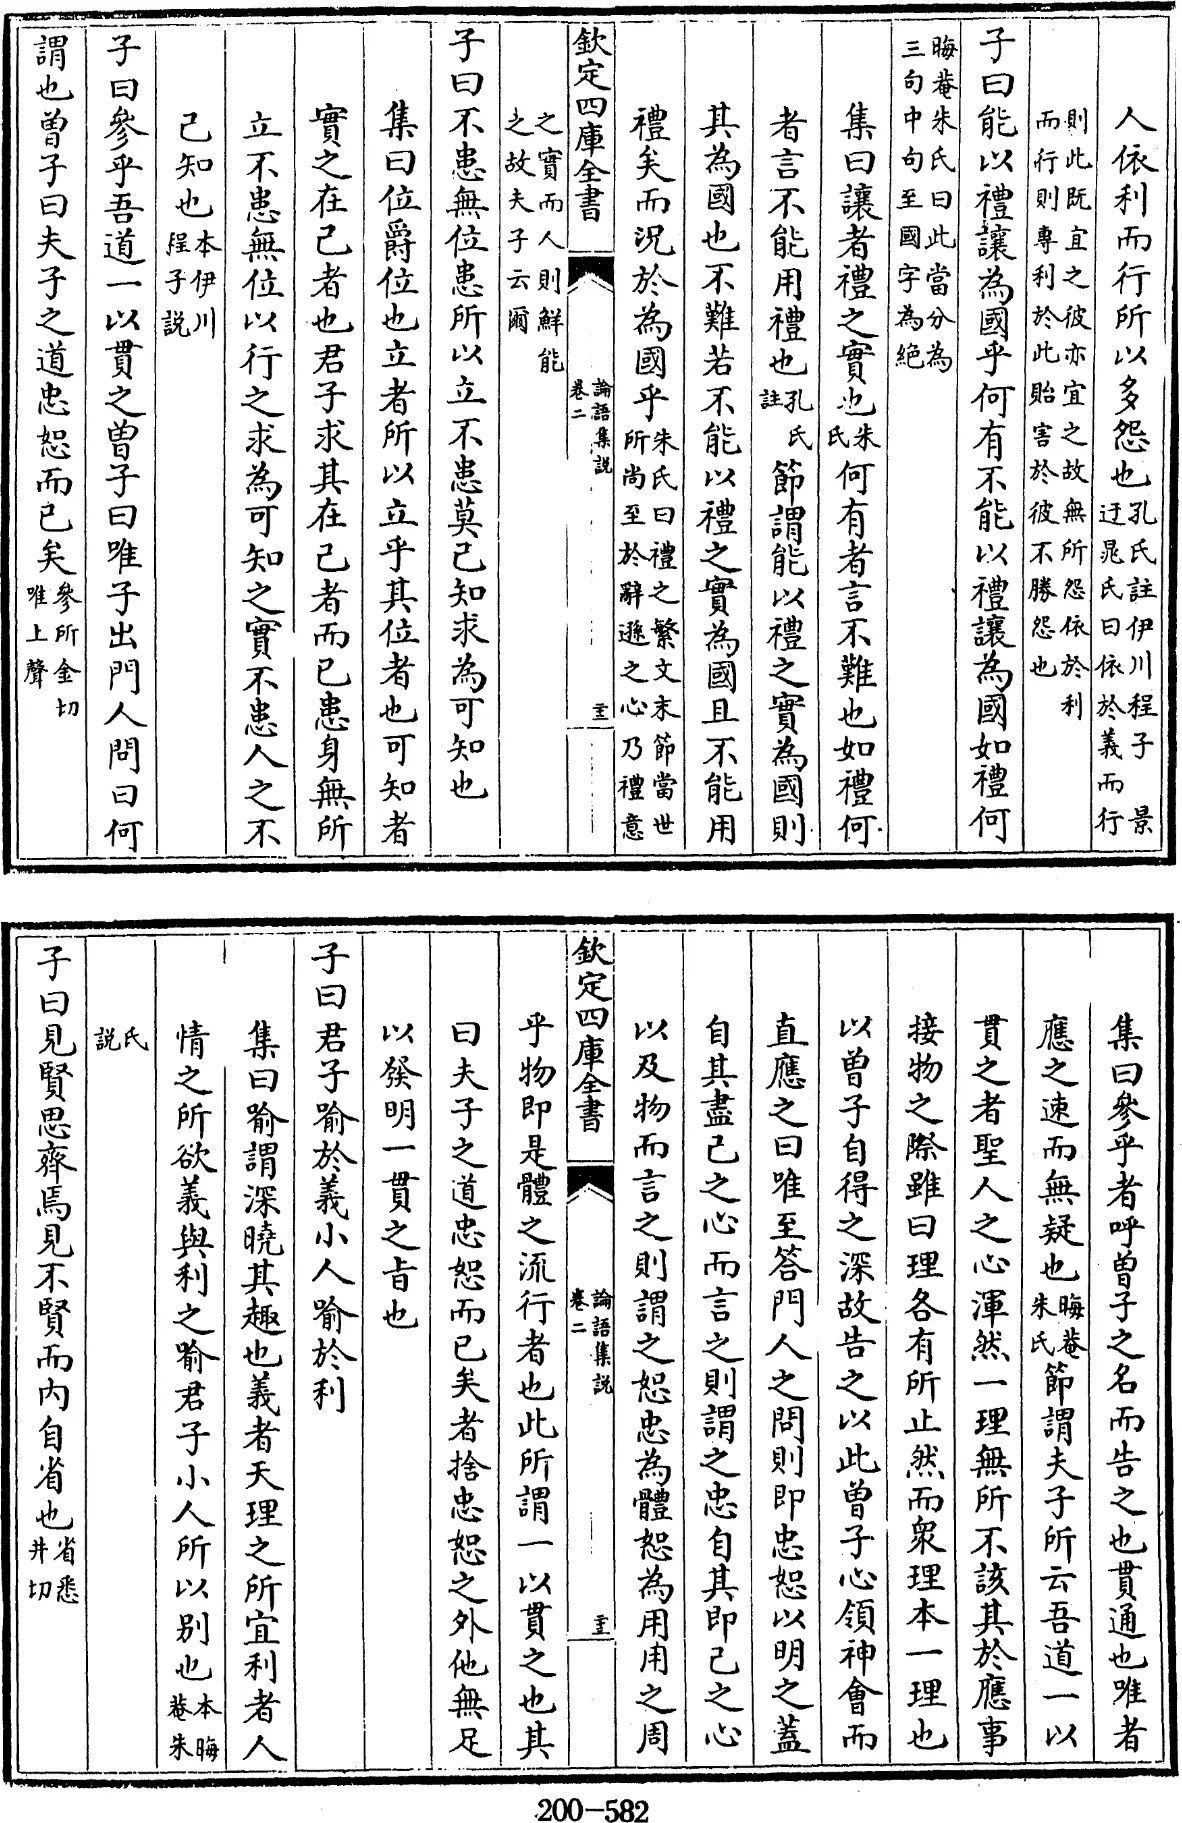 人依利而行所以多怨也孔氏註伊川程子 景迂晁氏曰依於義而行
則此既宜之彼亦宜之故無所怨依於利而行則專利於此貽害於彼不勝怨也
子曰能以禮讓為國乎何有不能以禮讓為國如禮何
晦菴朱氏曰此當分為三句中句至國字為絶
集曰讓者禮之實也朱氏何有者言不難也如禮何
者言不能用禮也孔氏註節謂能以禮之實為國則
其為國也不難若不能以禮之實為國且不能用
禮矣而況於為國乎朱氏曰禮之繁文末節當世所尚至於辭遜之心乃禮意
欽定四庫全書
論語集說
卷二
之實而人則鮮能之故夫子云爾
子曰不患無位患所以立不患莫己知求為可知也
集曰位爵位也立者所以立乎其位者也可知者
實之在己者也君子求其在己者而已患身無所
立不患無位以行之求為可知之實不患人之不
己知也本伊川程子説
子曰參乎吾道一以貫之曽子曰唯子出門人問曰何
謂也曽子曰夫子之道忠恕而已矣參所金切唯上聲
集曰參乎者呼曽子之名而告之也貫通也唯者
應之速而無疑也晦菴朱氏節謂夫子所云吾道一以
貫之者聖人之心渾然一理無所不該其於應事
接物之際雖曰理各有所止然而衆理本一理也
以曽子自得之深故告之以此曽子心領神會而
直應之曰唯至答門人之問則即忠恕以明之蓋
自其盡己之心而言之則謂之忠自其即己之心
以及物而言之則謂之恕忠為體恕為用用之周
欽定四庫全書
論語集説
卷二
乎物即是體之流行者也此所謂一以貫之也其
曰夫子之道忠恕而已矣者捨忠恕之外他無足
以發明一貫之旨也
子曰君子喻於義小人喻於利
集曰喻謂深曉其趣也義者天理之所宜利者人
情之所欲義與利之喻君子小人所以别也本晦菴朱
氏説
子曰見賢思齊焉見不賢而内自省也省悉井切
200-582